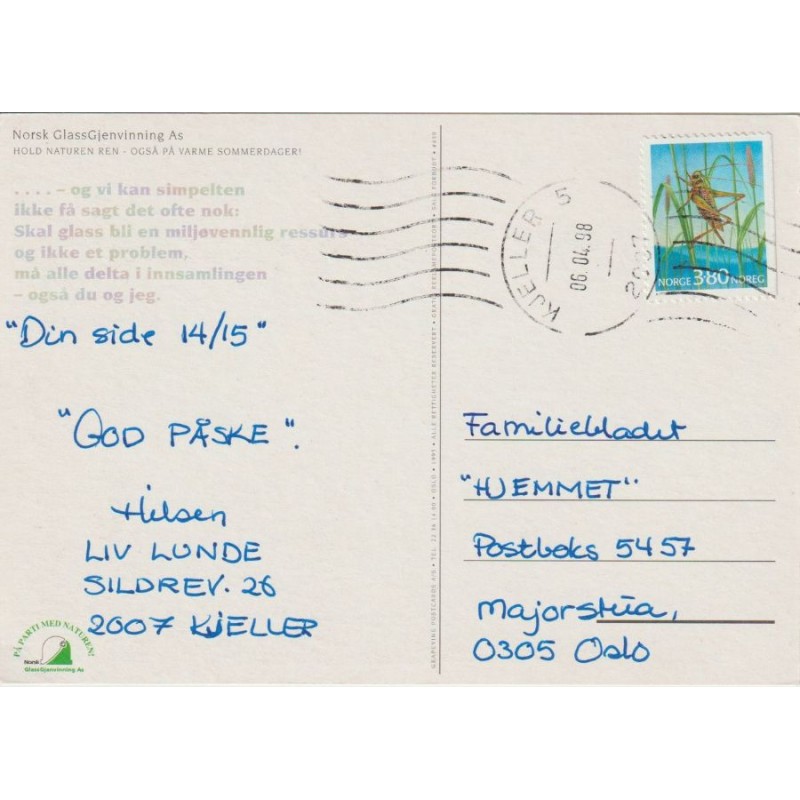 Norsk GlassGjenvinning As
HOLD NATUREN REN - OGSÅ PÅ VARME SOMMERDAGER!
. . . . – og vi kan simpelten
ikke få sagt det ofte nok:
Skal glass bli en miljøvennlig ressurs
og ikke et problem,
må alle delta i innsamlingen
– også du og jeg.
"Din side 14/15"
"GOD PÅSKE".
Hilsen
LIV LUNDE
SILDREV. 26
2007 KJELLER
PÅ PARTI MED NATUREN!
Norsk
GlassGjenvinning As
KJELLER 5
06.04.98
2007
NORGE 3.80 NOREG
Familiebladet
"HJEMMET"
Postboks 5457
Majorstua,
0305 Oslo